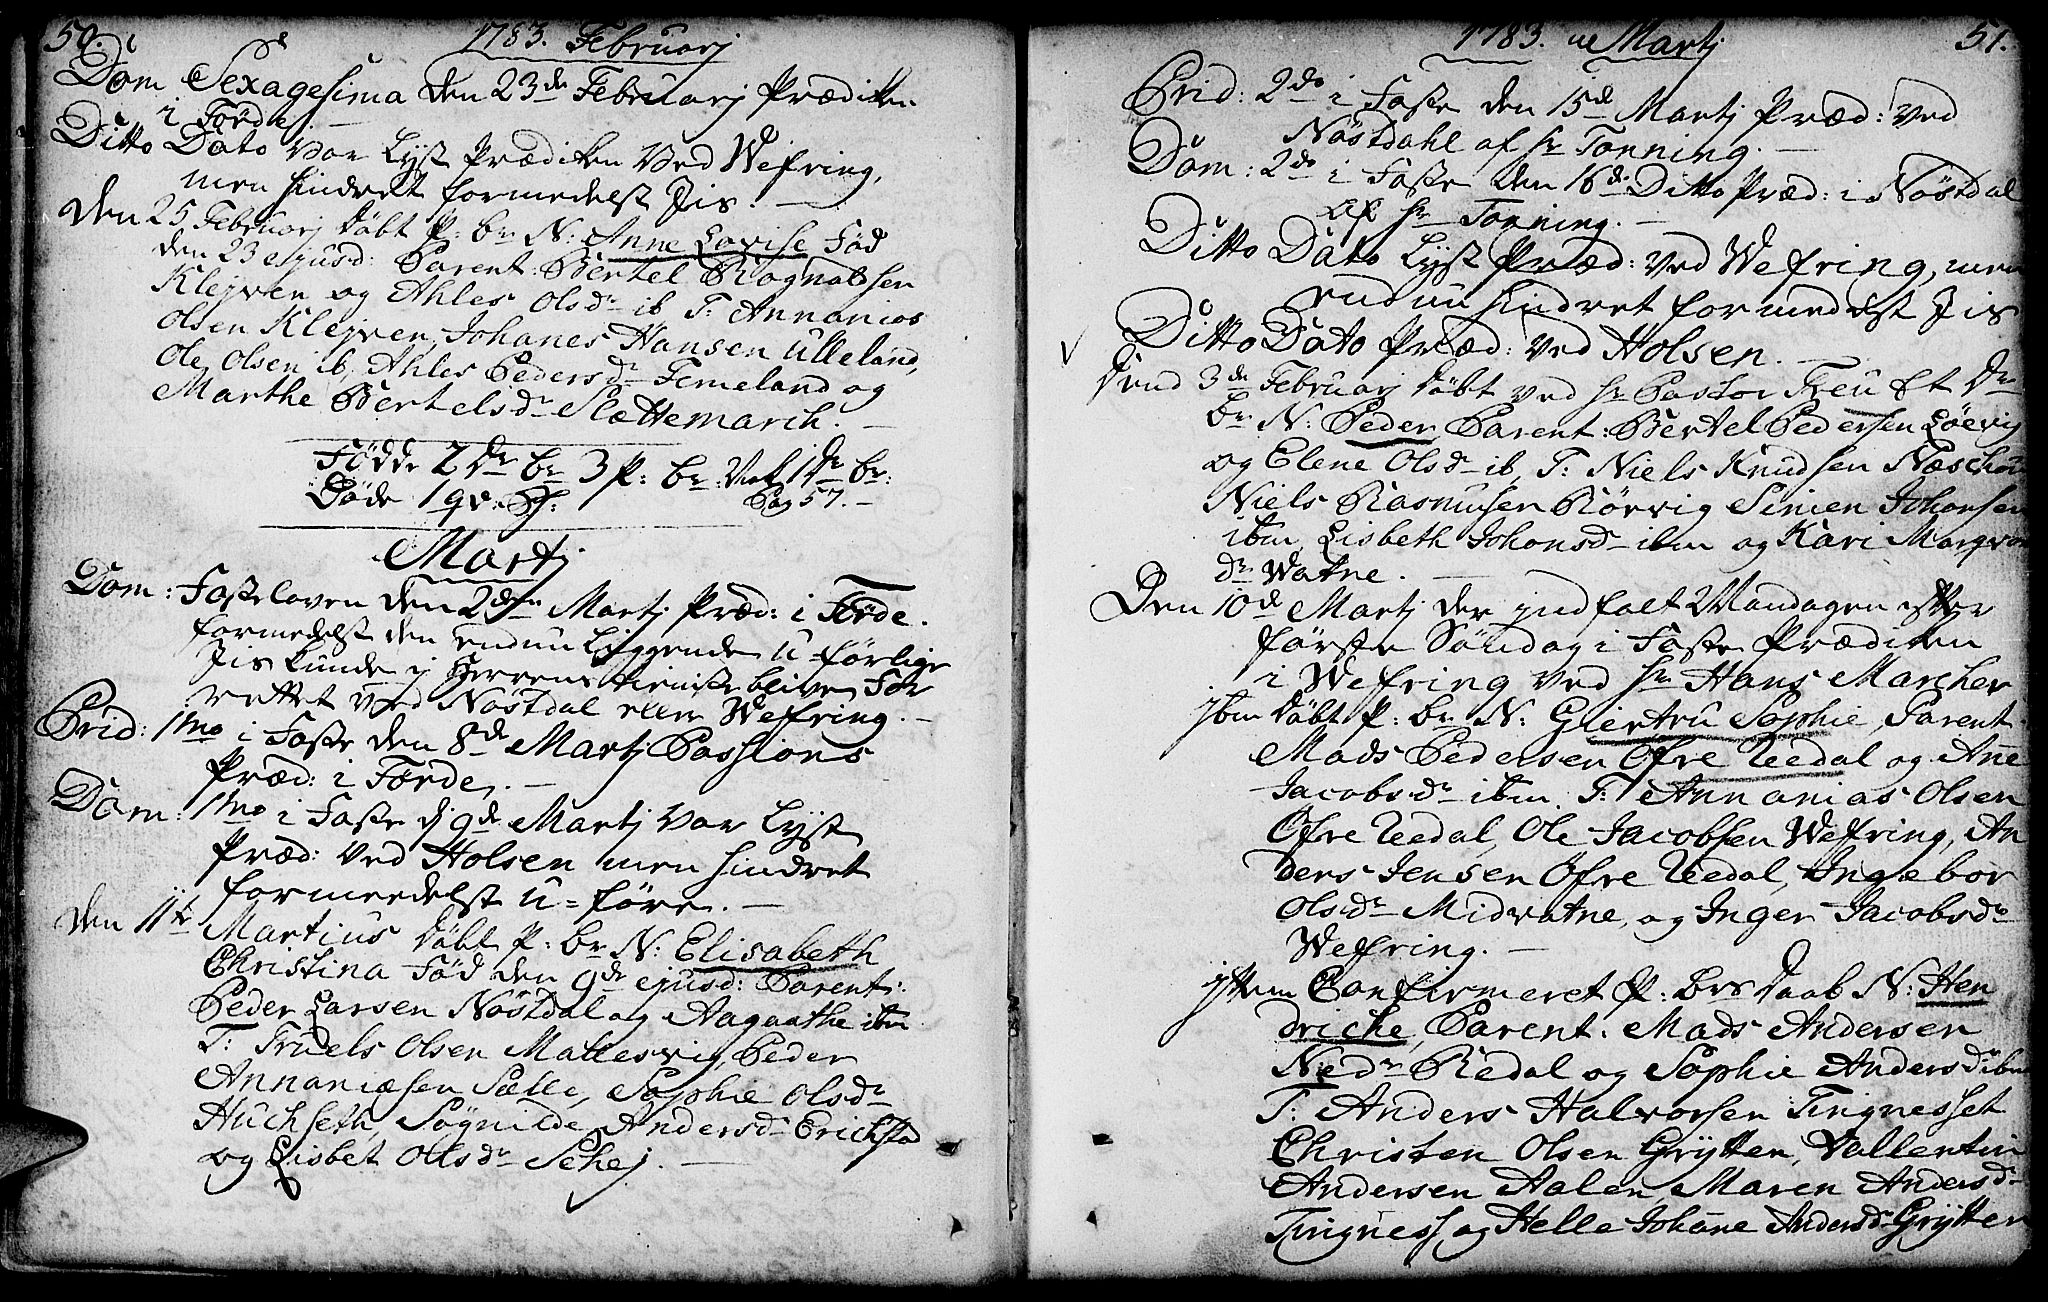 50.
1783. Februarj
Dom Sexagesima den 23de Februarj Prædiken
i Förde. —
Ditto Dato var Lyst Prædiken Ved Wefring,
men hindret formedelst Jis. —
Den 25 Februarj döbt P: br N: Anne Lovise Fød
den 23 ejusd: Parent: Bertel Rognalsen
Klejven og Ahles Olsdr ib T: Annanias
Olsen Klejven, Johanes Hansen Ulleland,
Ole Olsen ib, Ahles Pedersdr Femeland og
Marthe Bertelsdr Slættemarch. —
Födde 2 Dr br 3 P: br: 1 Dr br:
Døde 1 qv. Pag 57. —
Martj
Dom: Fastelaven den 2den Martj Præd: i Førde.
formedelst den endnu Liggende u-førlige
Jis kunde ej Herrens tieniste blive For
rettet ved Nøstdal eller Wefring. —
Prid: 1mo i Faste den 8de Martj Passions
Præd: i Førde. —
Dom: 1mo i Faste d 9de Martj var Lyst
Præd: ved Holsen men hindret
formeedelst u-føre. —
Den 11te Martius döbt P: br N: Elisabeth
Christina Fød den 9de ejusd: Parent:
Peder Larsen Nøstdal og Aagaathe ibm
T: Truels Olsen Mallesvig, Peder
Annaniæsen Sælle, Sophie Olsdr
Huchseth, Søgnilde Andersdr Erichstad
og Lisbet Olsdr Schej. —
1783. Martj
51.
Prid: 2do i Faste den 15de Martj Præd: ved
Nöstdahl af hr Tonning. —
Dom: 2do i Faste den 16de Ditto Præd: i Nöstdal
af hr Tonning. —
Ditto Dato Lyst Præd: ved Wefring, men
endnu hindret formedelst Jis
Ditto Dato Præd: ved Holsen. —
Dend 3de Februarj döbt ved hr Pastor Freu Et Dr
br N: Peder Parent: Bertel Pedersen Löevig
og Elene Olsdr ib, T: Niels Knudsen
Niels Rasmusen Rörvig Simen Johansen
ibm Lisbeth Johansdr ibm og Kari
dr Watne. —
Den 10de Martj der jndfalt Mandagen efter
förste Söndag i Faste Prædiken
i Wefring ved hr Hans Marcher
jbm döbt P: br N: Giertru Sophie, Parent
Mads Pedersen Öfre Uedal og Ane
Jacobsdr ibm. T: Annanias Olsen
Öfre Uedal, Ole Jacobsen Wefring, An
ders Jensen Öfre Uedal, Ingebor
Olsdr Midvatne, og Inger Jacobsdr
Wefring. —
jtem Confirmeret P: brs daab N: Hen
driche, Parent. Mads Andersen
Nedr Redal og Sophie Andersd ibm
T: Anders Halvorsen Tingnesset
Christen Olsen Grytten, Vallentin
Andersen Aalen, Maren Andersd-
Tingness, og Helle Johane Andersd Grytten